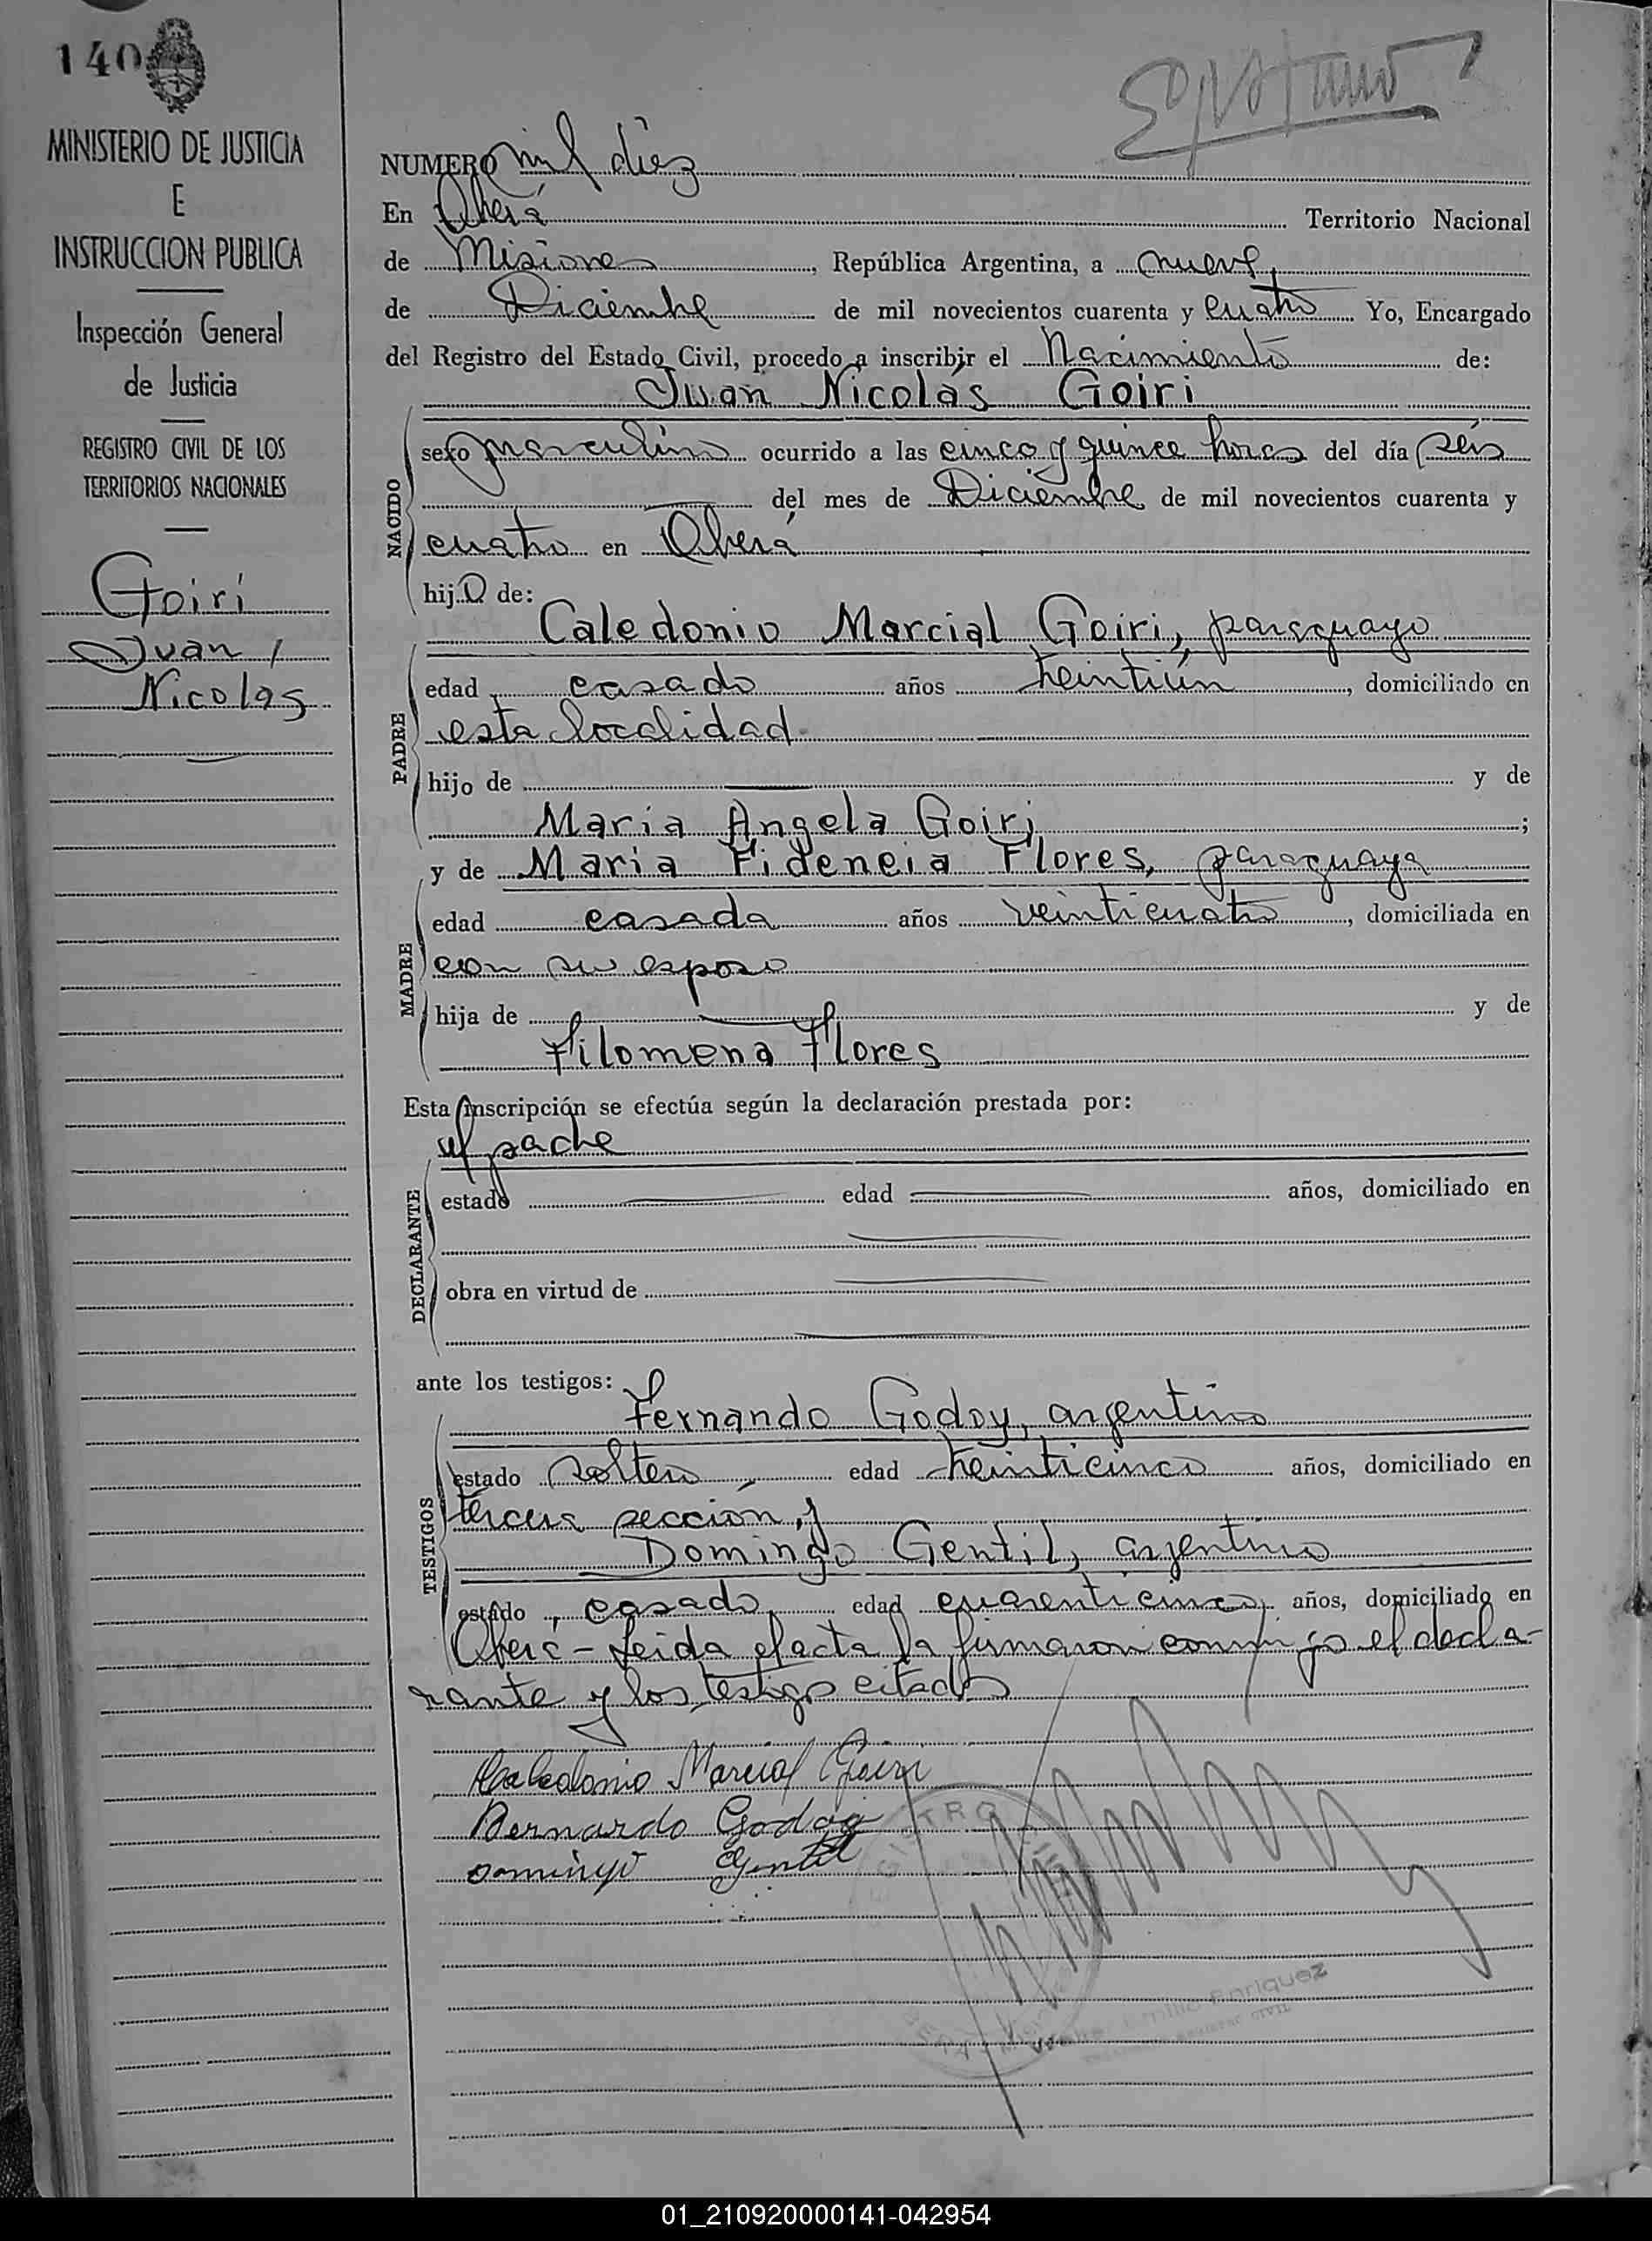 140
MINISTERIO DE JUSTICIA
E
INSTRUCCION PUBLICA
Inspección General
de Justicia
REGISTRO CIVIL DE LOS
TERRITORIOS NACIONALES
Goiri
Juan
Nicolás
NUMERO mil diez
En Oberá Territorio Nacional
de Misiones, República Argentina, a nueve
de Diciembre de mil novecientos cuarenta y cuatro Yo, Encargado
del Registro del Estado Civil, procedo a inscribir el Nacimiento de:
Juan Nicolás Goiri
NACIDO
sexo masculino ocurrido a las cinco y quince horas del día seis
del mes de Diciembre de mil novecientos cuarenta y
cuatro en Oberá
hijo de:
Caledonio Marcial Goiri, paraguayo
PADRE
edad casado años treintiún, domiciliado en
esta localidad
hijo de y de
María Angela Goiri;
y de María Fidencia Flores, paraguaya
MADRE
edad casada años veinticuatro, domiciliada en
con su esposo
hija de y de
Filomena Flores
Esta inscripción se efectúa según la declaración prestada por:
el padre
DECLARANTE
estado edad años, domiciliado en
obra en virtud de
ante los testigos:
Fernando Godoy, argentino
TESTIGOS
estado soltero edad treinticinco años, domiciliado en
tercera sección y
Domingo Gentil, argentino
estado casado, edad cuarenticinco, años, domiciliado en
Oberá - Leida el acta la firmaron conmigo el decla-
rante y los testigos citados
Caledonio Marcial Goiri
Bernardo Godoy
Domingo Gentil
Emilio Enriquez
01_210920000141-042954